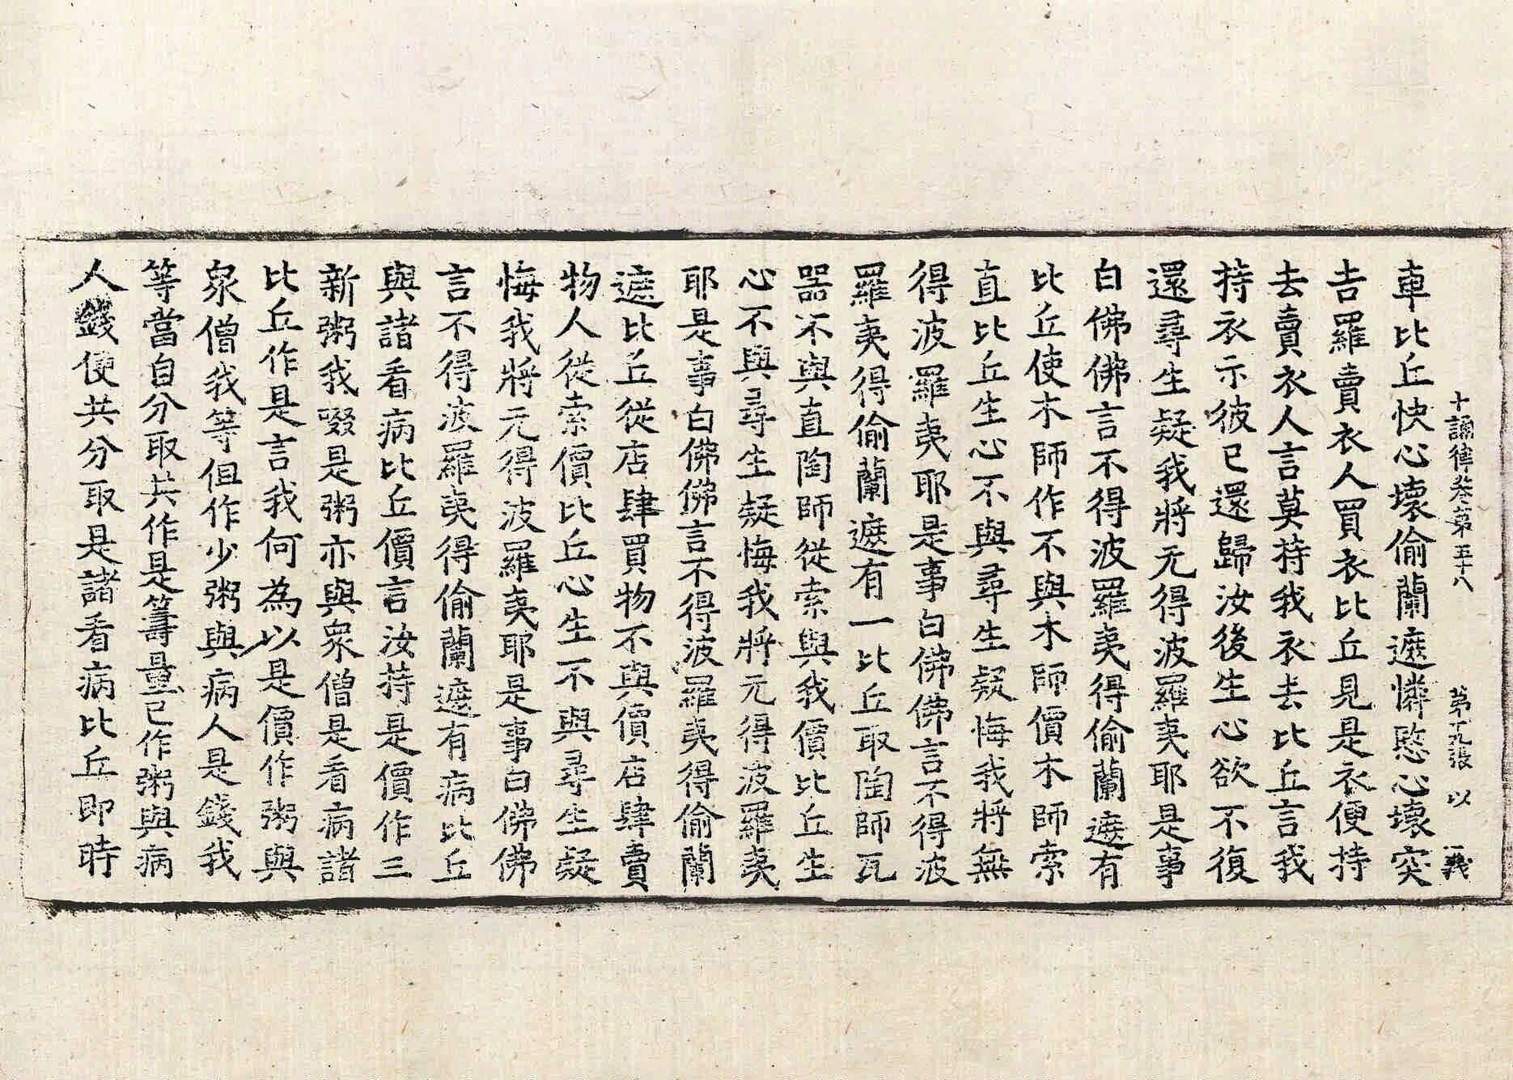 十誦律卷第五十八 第十九張 以 義
車比丘快心壞偷蘭遮憐愍心壞突
吉羅賣衣人買衣比丘見是衣便持
去賣衣人言莫持我衣去比丘言我
持衣示彼已還歸汝後生心欲不復
還尋生疑我將无得波羅夷耶是事
白佛佛言不得波羅夷得偷蘭遮有
比丘使木師作不與木師價木師索
直比丘生心不與尋生疑悔我將無
得波羅夷耶是事白佛佛言不得波
羅夷得偷蘭遮有一比丘取陶師瓦
器不與直陶師從索與我價比丘生
心不與尋生疑悔我將无得波羅夷
耶是事白佛佛言不得波羅夷得偷蘭
遮比丘從店肆買物不與價店肆賣
物人從索價比丘心生不與尋生疑
悔我將无得波羅夷耶是事白佛佛
言不得波羅夷得偷蘭遮有病比丘
與諸看病比丘價言汝持是價作三
新粥我啜是粥亦與眾僧是看病諸
比丘作是言我何為以是價作粥與
眾僧我等但作少粥與病人是錢我
等當自分取共作是籌量已作粥與病
人錢便共分取是諸看病比丘即時